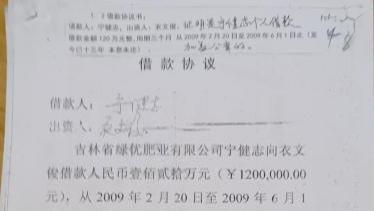 1：3 借款协议书：
借款人：宁健志，出资人：衣文俊，证明是宁健志个人借款
借款金额 120 万元整，周期三个月 从 2009 年 2 月 20 日至 2009 年 6 月 1 日止（至
今已十三年 本息未还）
借 款 协 议
借款人：宁健志
出资人：
吉林省绿优肥业有限公司宁健志向衣文
俊借款人民币壹佰贰拾万元（￥1200,000.00
元），从 2009 年 2 月 20 日至 2009 年 6 月 1